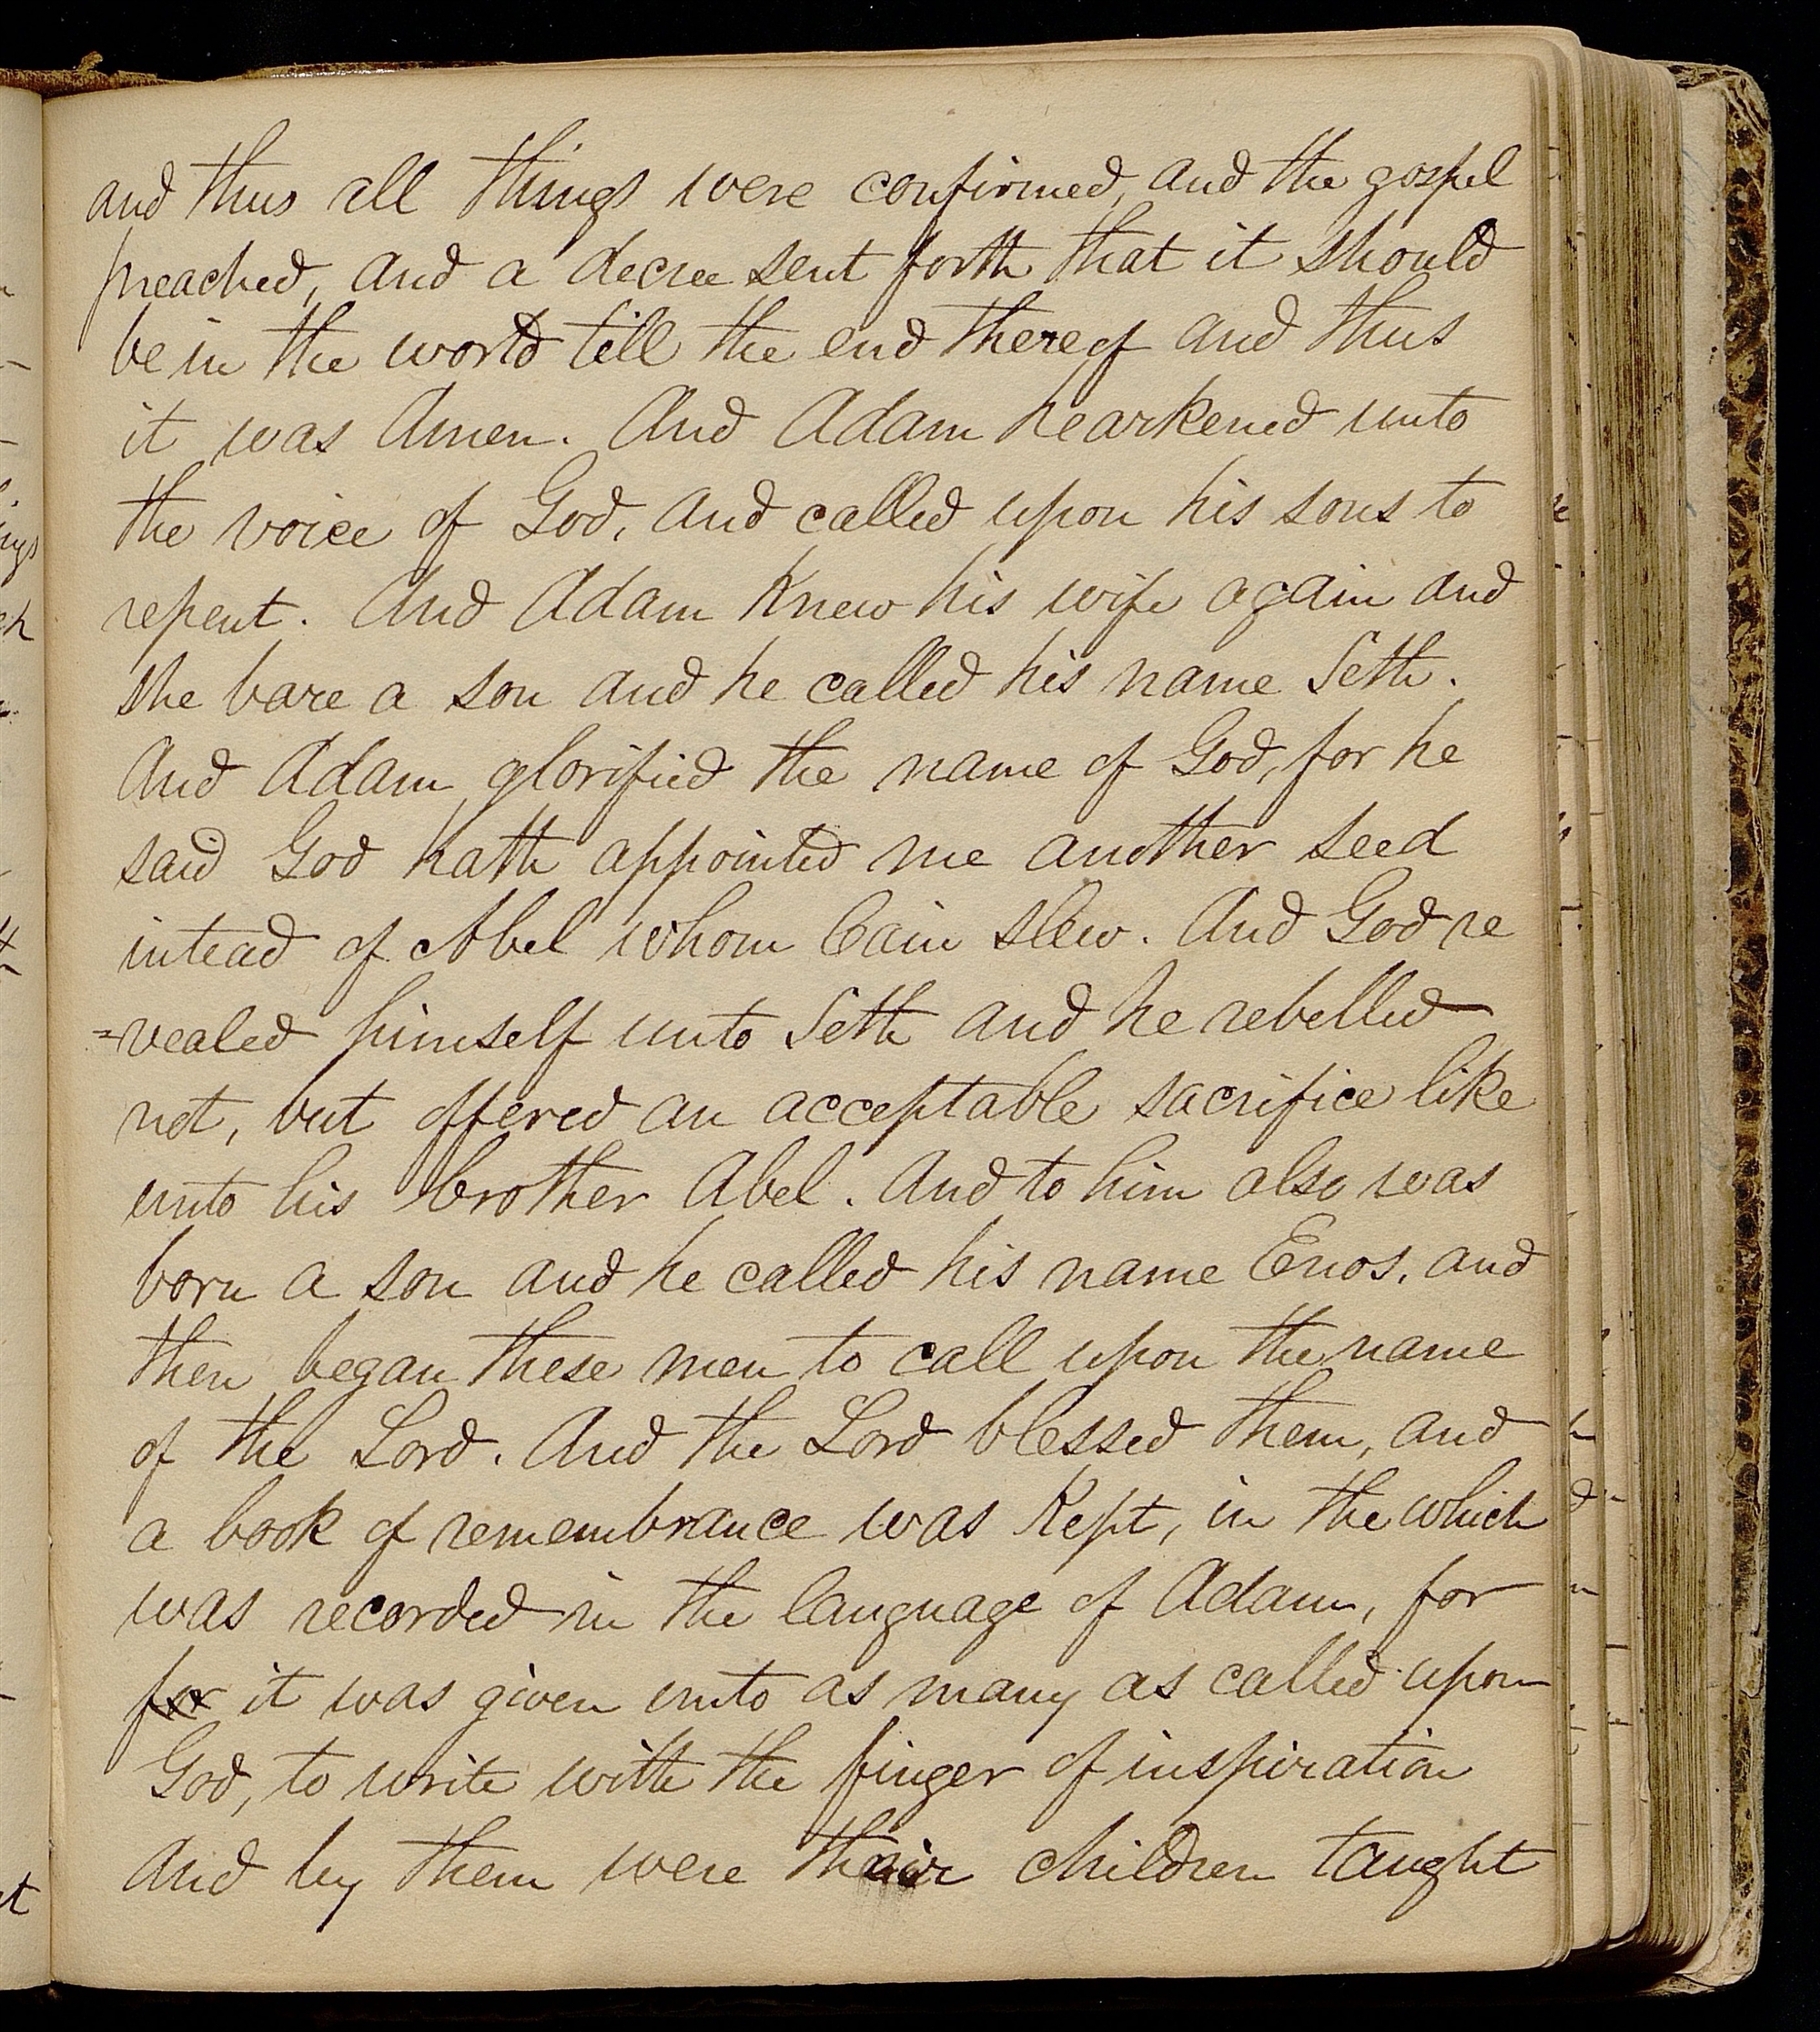 and thus all things were confirmed, and the gospel
preached, and a decree sent forth that it should
be in the world till the end thereof and thus
it was Amen. And Adam hearkened unto
the voice of God, and called upon his sons to
repent. And Adam knew his wife again and
she bare a son and he called his name Seth.
And Adam glorified the name of God, for he
said God hath appointed me another seed
intead of Abel whom Cain slew. And God re
=vealed himself unto Seth and he rebelled
not, but offered an acceptable sacrifice like
unto his brother Abel. And to him also was
born a son and he called his name Enos, and
then began these men to call upon the name
of the Lord. And the Lord blessed them, and
a book of remembrance was kept, in the which
was recorded in the language of Adam, for
for it was given unto as many as called upon
God, to write with the finger of inspiration
And by them were their children taught